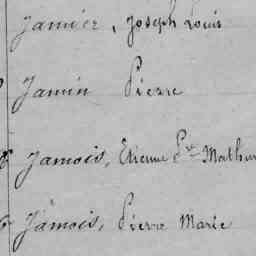 Janvier, Joseph Louis
Jamin Pierre
Jamois, Etienne Pre Mathu
Jamois, Pierre Marie